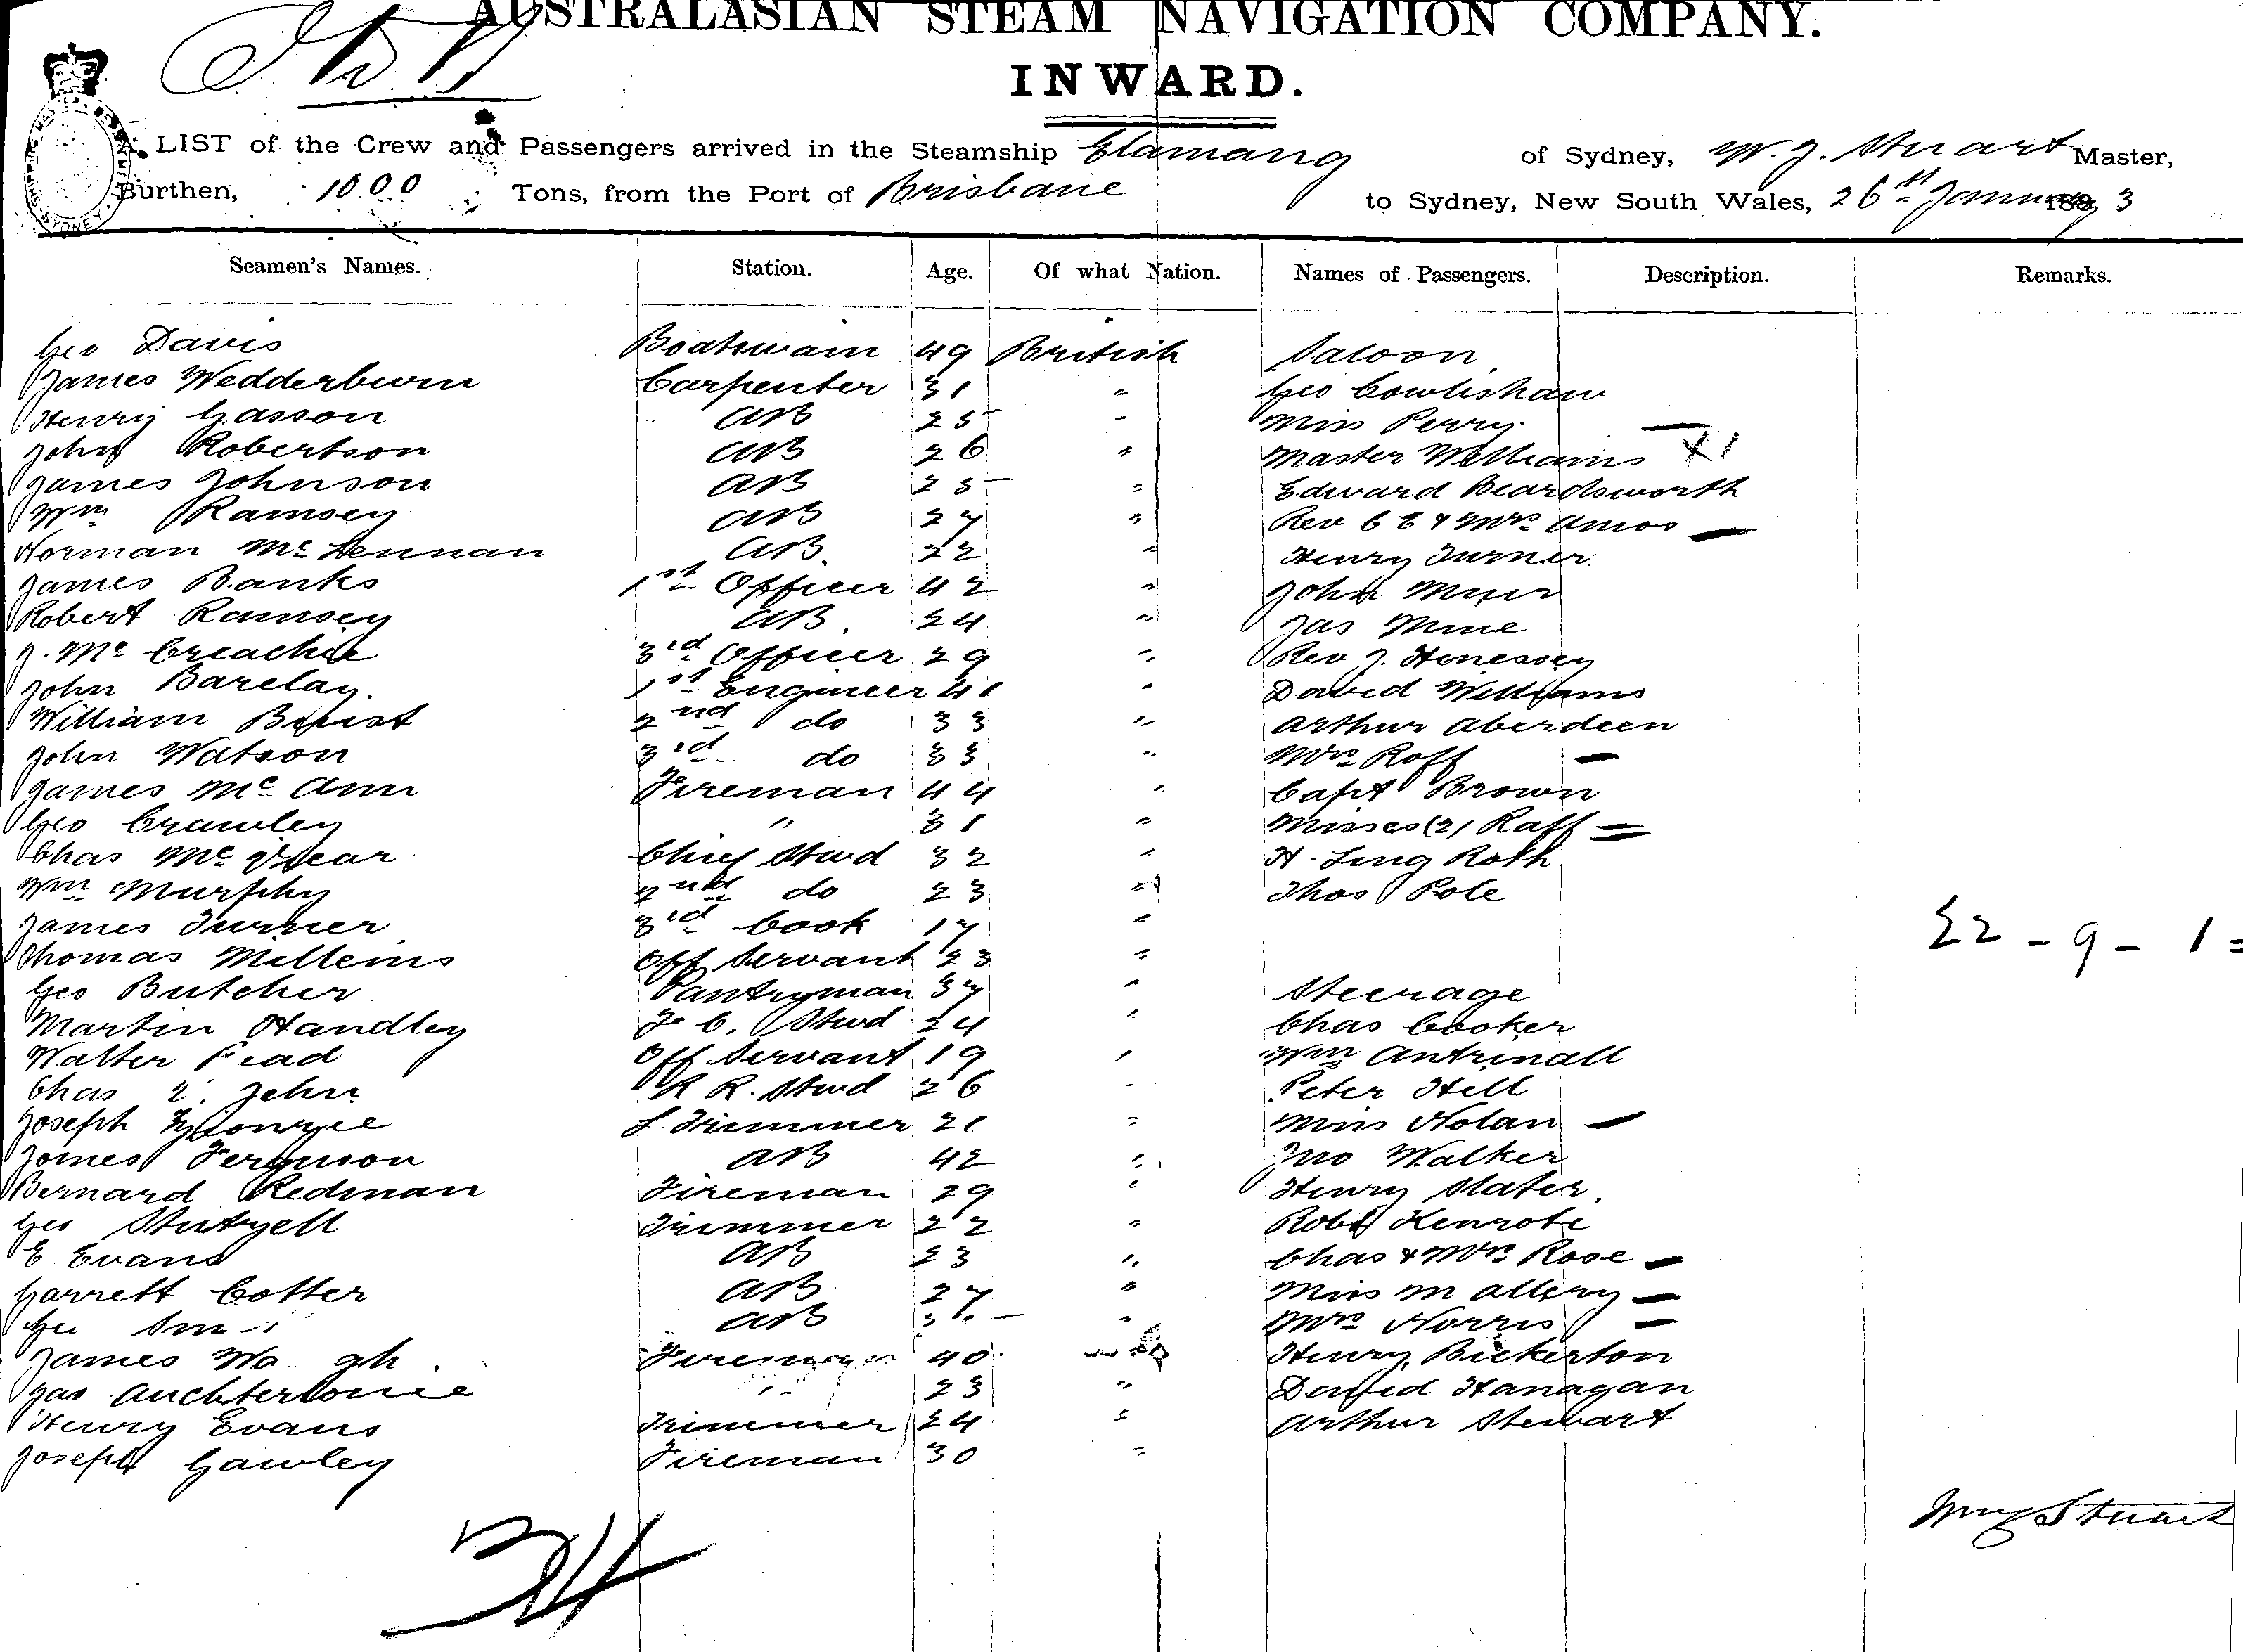 AUSTRALASIAN STEAM NAVIGATION COMPANY.
INWARD.
A LIST of the Crew and Passengers arrived in the Steamship Elamang of Sydney, W. J. Stuart Master,
Burthen, 1000 Tons, from the Port of Brisbane to Sydney, New South Wales, 26th January 1883
Seamen's Names. Station. Age. Of what Nation. Names of Passengers. Description. Remarks.
Geo Davis Boatswain 49 British Saloon
James Wedderburn Carpenter 31 " Geo Cowlishaw
Henry Gasson AB 25 " Miss Perry —
John Robertson AB 26 " Master Williams X1
James Johnson AB 25 " Edward Beardsworth
Wm Ramsey AB 27 " Rev C E & Mrs Amos —
Norman McLennan AB 22 " Henry Turner
James Banks 1st Officer 42 " John Muir
Robert Ramsey AB 24 " Jas Milne
J. McCreachie 3rd Officer 29 " Rev J. Henessey
John Barclay. 1st Engineer 41 " David Williams
William 2nd do 33 " Arthur Aberdeen
John Watson 3rd do 33 " Mrs Raff —
James McCann Fireman 44 " Capt Brown
Geo Crawley " 31 " Misses (2) Raff =
Chas Chief Stwd 32 " H. Ling Roth
Wm Murphy 2nd do 23 " Thos Pole
James Turner 3rd Cook 17 "
£2 - 9 - 1 =
Thomas Off Servant 23 "
Geo Butcher Pantryman 37 " Steerage
Martin Handley F. C. Stwd 24 " Chas Cooker
Walter Off Servant 19 " Wm
Chas R R. Stwd 26 " Peter Hill
Joseph Trimmer 21 " Miss Nolan —
James Ferguson AB 42 " Jno Walker
Bernard Redman Fireman 29 " Henry Slater.
Geo Trimmer 22 " Robt
E. Evans AB 23 " Chas & Mrs Rose —
Garrett Cotter AB 27 " Miss M —
Geo AB " Mrs Norris —
James Fireman 40 " Henry Bickerton
Jas Auchterlonie " 23 " David Hanagan
Henry Evans Trimmer 24 " Arthur Stewart
Joseph Gawley Fireman 30 "
Wm J Stuart
34